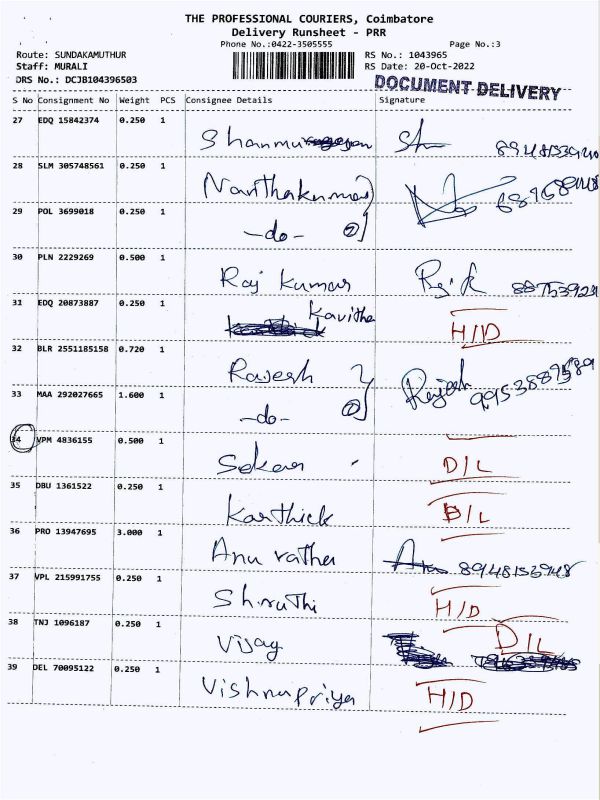 THE PROFESSIONAL COURIERS, Coimbatore
Delivery Runsheet - PRR
Phone No.:0422-3505555 Page No.:3
Route: SUNDAKAMUTHUR RS No.: 1043965
Staff: MURALI RS Date: 20-Oct-2022
DRS No.: DCJB104396503 DOCUMENT DELIVERY
S No Consignment No Weight PCS Consignee Details Signature
27 EDQ 15842374 0.250 1
28 SLM 305748561 0.250 1 Nanthakumar
29 POL 3699018 0.250 1 -do- 2
30 PLN 2229269 0.500 1 Raj kumar
31 EDQ 20873887 0.250 1 Kavitha H/D
32 BLR 2551185158 0.720 1 Rajesh Rajesh
33 MAA 292027665 1.600 1 -do- 2
34 VPM 4836155 0.500 1 Sekar D/L
35 DBU 1361522 0.250 1 Karthick D/L
36 PRO 13947695 3.000 1 Anu ratha
37 VPL 215991755 0.250 1 Shruthi H/D
38 TNJ 1096187 0.250 1 Vijay D/L
39 DEL 70095122 0.250 1 Vishnupriya H/D